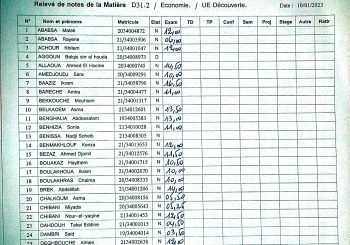 Relevé de notes de la Matière D31.2 / Economie. / UE Découverte. Date : 10/01/2023
N° Nom et prénoms Matricule Etat Exam TD TP Conf Sem Pro Stage Autre Rattr
1 ABABSA Malak 2034004872 N 12,00
2 ABABSA Rayene 21/34003506 N
3 ACHOUR Khitem 21/34001047 N
4 AGGOUN Balqis sirr el houda 20/34008973 D
5 ALLAOUA Ahmed El Hocine 2034000745 N 14,50
6 AMEDJOUDJ Sara 20/34009291 N 10,00
7 BAAZIZ Ikram 21/34058790 N 16,50
8 BARECHE Amira 21/34004477 N 11,00
9 BEKKOUCHE Mouhsen 21/34001317 N
10 BELKACEM Asma 2134012601 N 13,50
11 BENGHALIA Abdessalam 1934005383 N 13,00
12 BENHIZIA Sonia 2134010028 N 11,00
13 BENISSA Nadji Soheib 2034008303 N
14 BENMAKHLOUF Kenza 21/34013653 N 12,00
15 BEZAZ Ahmed Djamil 21/34012576 N 11,50
16 BOUAKAZ Haythem 21/34001715 N 10,50
17 BOULAKHOUA Ikram 21/34012670 N 10,00
18 BOULAKHRAS Chaima 21/34008335 N 10,00
19 BREK Abdellilah 21/34001206 N 14,00
20 CHALKOUM Asma 20/34008156 N 05,50
21 CHIBANI Miyada 20/34005643 N 05,25
22 CHIBANI Nour-el-yaqine 2134001453 N 12,50
23 DAHDOUH Takel Eddine 21/34001015 N 04,50
24 DAMBRI Said 19/34004014 N 03,50
DEGHBOUCHE Ahmed 2134002638 N